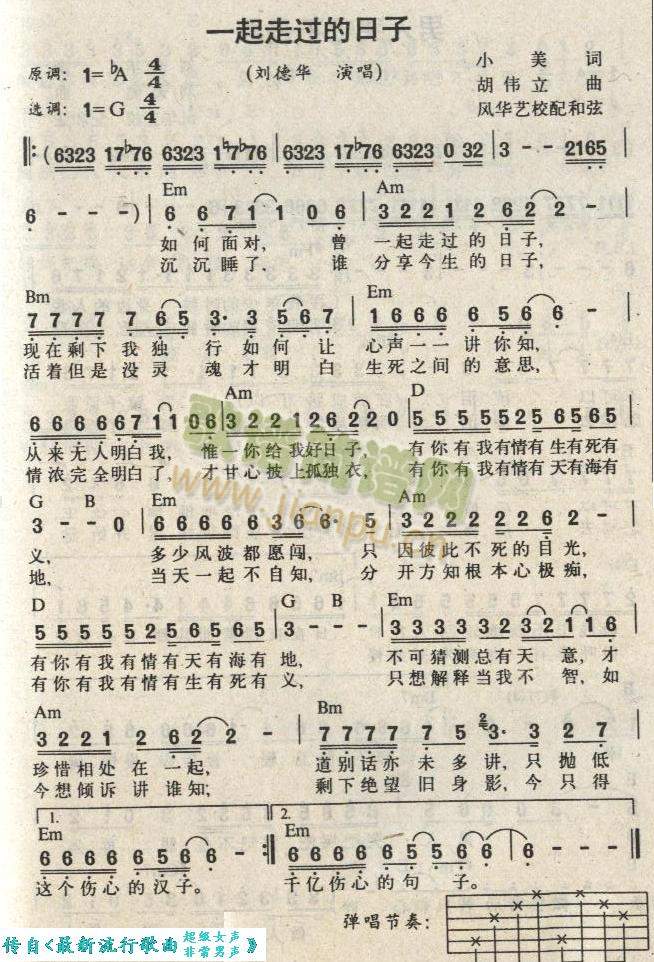 一起走过的日子
原调: 1=♭A 4/4
(刘德华 演唱)
小美 词
胡伟立 曲
选调: 1=G 4/4
风华艺校配和弦
(6323 17♭76 6323 1♭7♭76 | 6323 17♭76 6323 0 32 | 3 - - 2165 |
Em Am
6 - - -) | 6 6 7 1 1 0 6 | 3 2 2 1 2 6 2 2 - |
如何面对, 曾 一起走过的日子,
沉沉睡了, 谁 分享今生的日子,
Bm Em
7 7 7 7 7 6 5 3· 3 5 6 7 | 1 6 6 6 6 5 6 6 - |
现在剩下我独 行如何让 心声一一讲你知,
活着但是没灵 魂才明白 生死之间的意思,
Am D
6 6 6 6 6 6 7 1 1 0 6 | 3 2 2 1 2 6 2 2 0 | 5 5 5 5 5 5 2 5 6 5 6 5 |
从来无人明白我, 惟一你给我好日子, 有你有我有情有生有死有
情浓完全明白了, 才甘心披上孤独衣, 有你有我有情有天有海有
G B Em Am
3 - - 0 | 6 6 6 6 6 3 6 6· 5 | 3 2 2 2 2 2 6 2 - |
义, 多少风波都愿闯, 只 因彼此不死的目光,
地, 当天一起不自知, 分 开方知根本心极痴,
D G B Em
5 5 5 5 5 5 2 5 6 5 6 5 | 3 - - - | 3 3 3 3 3 2 3 2 1 1 6 |
有你有我有情有天有海有 地, 不可猜测总有天 意, 才
有你有我有情有生有死有 义, 只想解释当我不 智, 如
Am Bm
3 2 2 1 2 6 2 2 - | 7 7 7 7 7 5 3· 3 2 7 |
珍惜相处在一起, 道别话亦未多讲, 只抛低
今想倾诉讲谁知; 剩下绝望旧身影, 今只得
1. 2.
Em Em
6 6 6 6 6 5 6 6 - :| 6 6 6 6 6 5 5 6 6 | 6 - - - ‖
这个伤心的汉子。 千亿伤心的句 子。
弹唱节奏:
传自《最新流行歌曲 超级女声 非常男声》
www.jianpu.cn